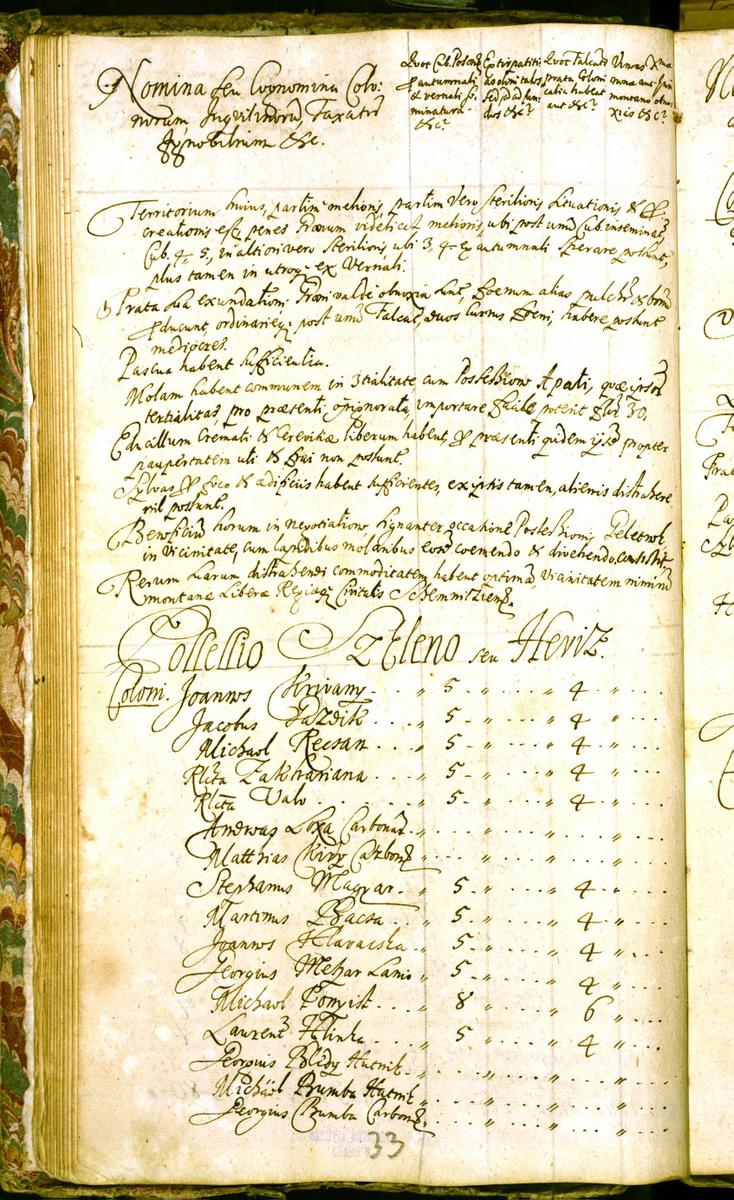 Nomina seu Cognomina Colo:
norum, Inquilinorũ, Taxatorũ
Ignobilium &c.
Quot Cub. Poson.
p autumnali
& vernali se-
minatura
&c?
Quot Falcato
prata Coloni
habeat
aut &c?
Vineas
&c?
Territorium huius, partim melioris, partim vero sterilioris situationis, & p
creationis est, penes Granum videlicet melioris, ubi post unũ Cub. inseminat.
Cub. 4, 5, in altiori vero sterilioris, ubi 3, 4 ex autumnali sperare possunt,
plus tamen in utroq; ex Vernali.
Prata sua exundationi Grani valde obnoxia sunt, foenum alias pulchrũ & bonũ
pducunt, ordinarieq; post unũ Falcat. duos currus foeni, habere possunt
mediocres.
Pascua habent sufficientia.
Molam habent communem in 3tialitate, cum Possessione Apati, quæ ipsorũ
tertialitas, pro præsenti oppignorata, importare facile poterit flor. 30.
Educillum Cremati & Cerevisiæ liberum habent, p præsenti quidem ipso propter
paupertatem uti & frui non possunt.
Sylvas p foco & ædificiis habent sufficientes, ex ipsis tamen, alienis distrahere
nil possunt.
Beneficiũ horum in negotiatione signanter, occasione Possessionis Teletnok
in vicinitate, cum lapidibus molaribus eosq coemendo & divehendo, consistit.
Rerum suarum distrahendi commoditatem habent optimã, vicinitatem nimirũ
montanæ Liberæ Regiæq; Civitatis Schemnitziens.
Possessio Szkleno seu Heviz.
Coloni. Joannes Krivany . . . „ 5 . „ . . . . „ 4 . „ . . .
Jacobus Pazdik . . . „ 5 . „ . . . . „ 4 . „ . . .
Michael Recsan . . . „ 5 . „ . . . . „ 4 . „ . . .
Rlcta Zakhariana . . . „ 5 . „ . . . . „ 4 . „ . . .
Rlcta Valo . . . „ 5 . „ . . . . „ 4 . „ . . .
Andreas Loxa Carbonar. „ . . . „ . . . . „ . . . „ . . .
Matthias Kirly Carbon. „ . . . „ . . . . „ . . . „ . . .
Stephanus Magyar . „ 5 . „ . . . . „ 4 . „ . . .
Martinus Bacsa . . „ 5 . „ . . . . „ 4 . „ . . .
Joannes Hlavacska . „ 5 . „ . . . . „ 4 . „ . . .
Georgius Mehar Lanio „ 5 . „ . . . . „ 4 . „ . . .
Michael Ponyist . „ 8 „ . . . . „ 6 „ . . .
Laurent. Hlinka . „ 5 . „ . . . . „ 4 „ . . .
Georgius Bledy Hutnik . „ . . . „ . . . . „ . . . „ . . .
Michäel Brumba Hutnik „ . . . „ . . . . „ . . . „ . . .
Georgius Bumba Carbon. „ . . . „ . . . . „ . . . „ . . .
33